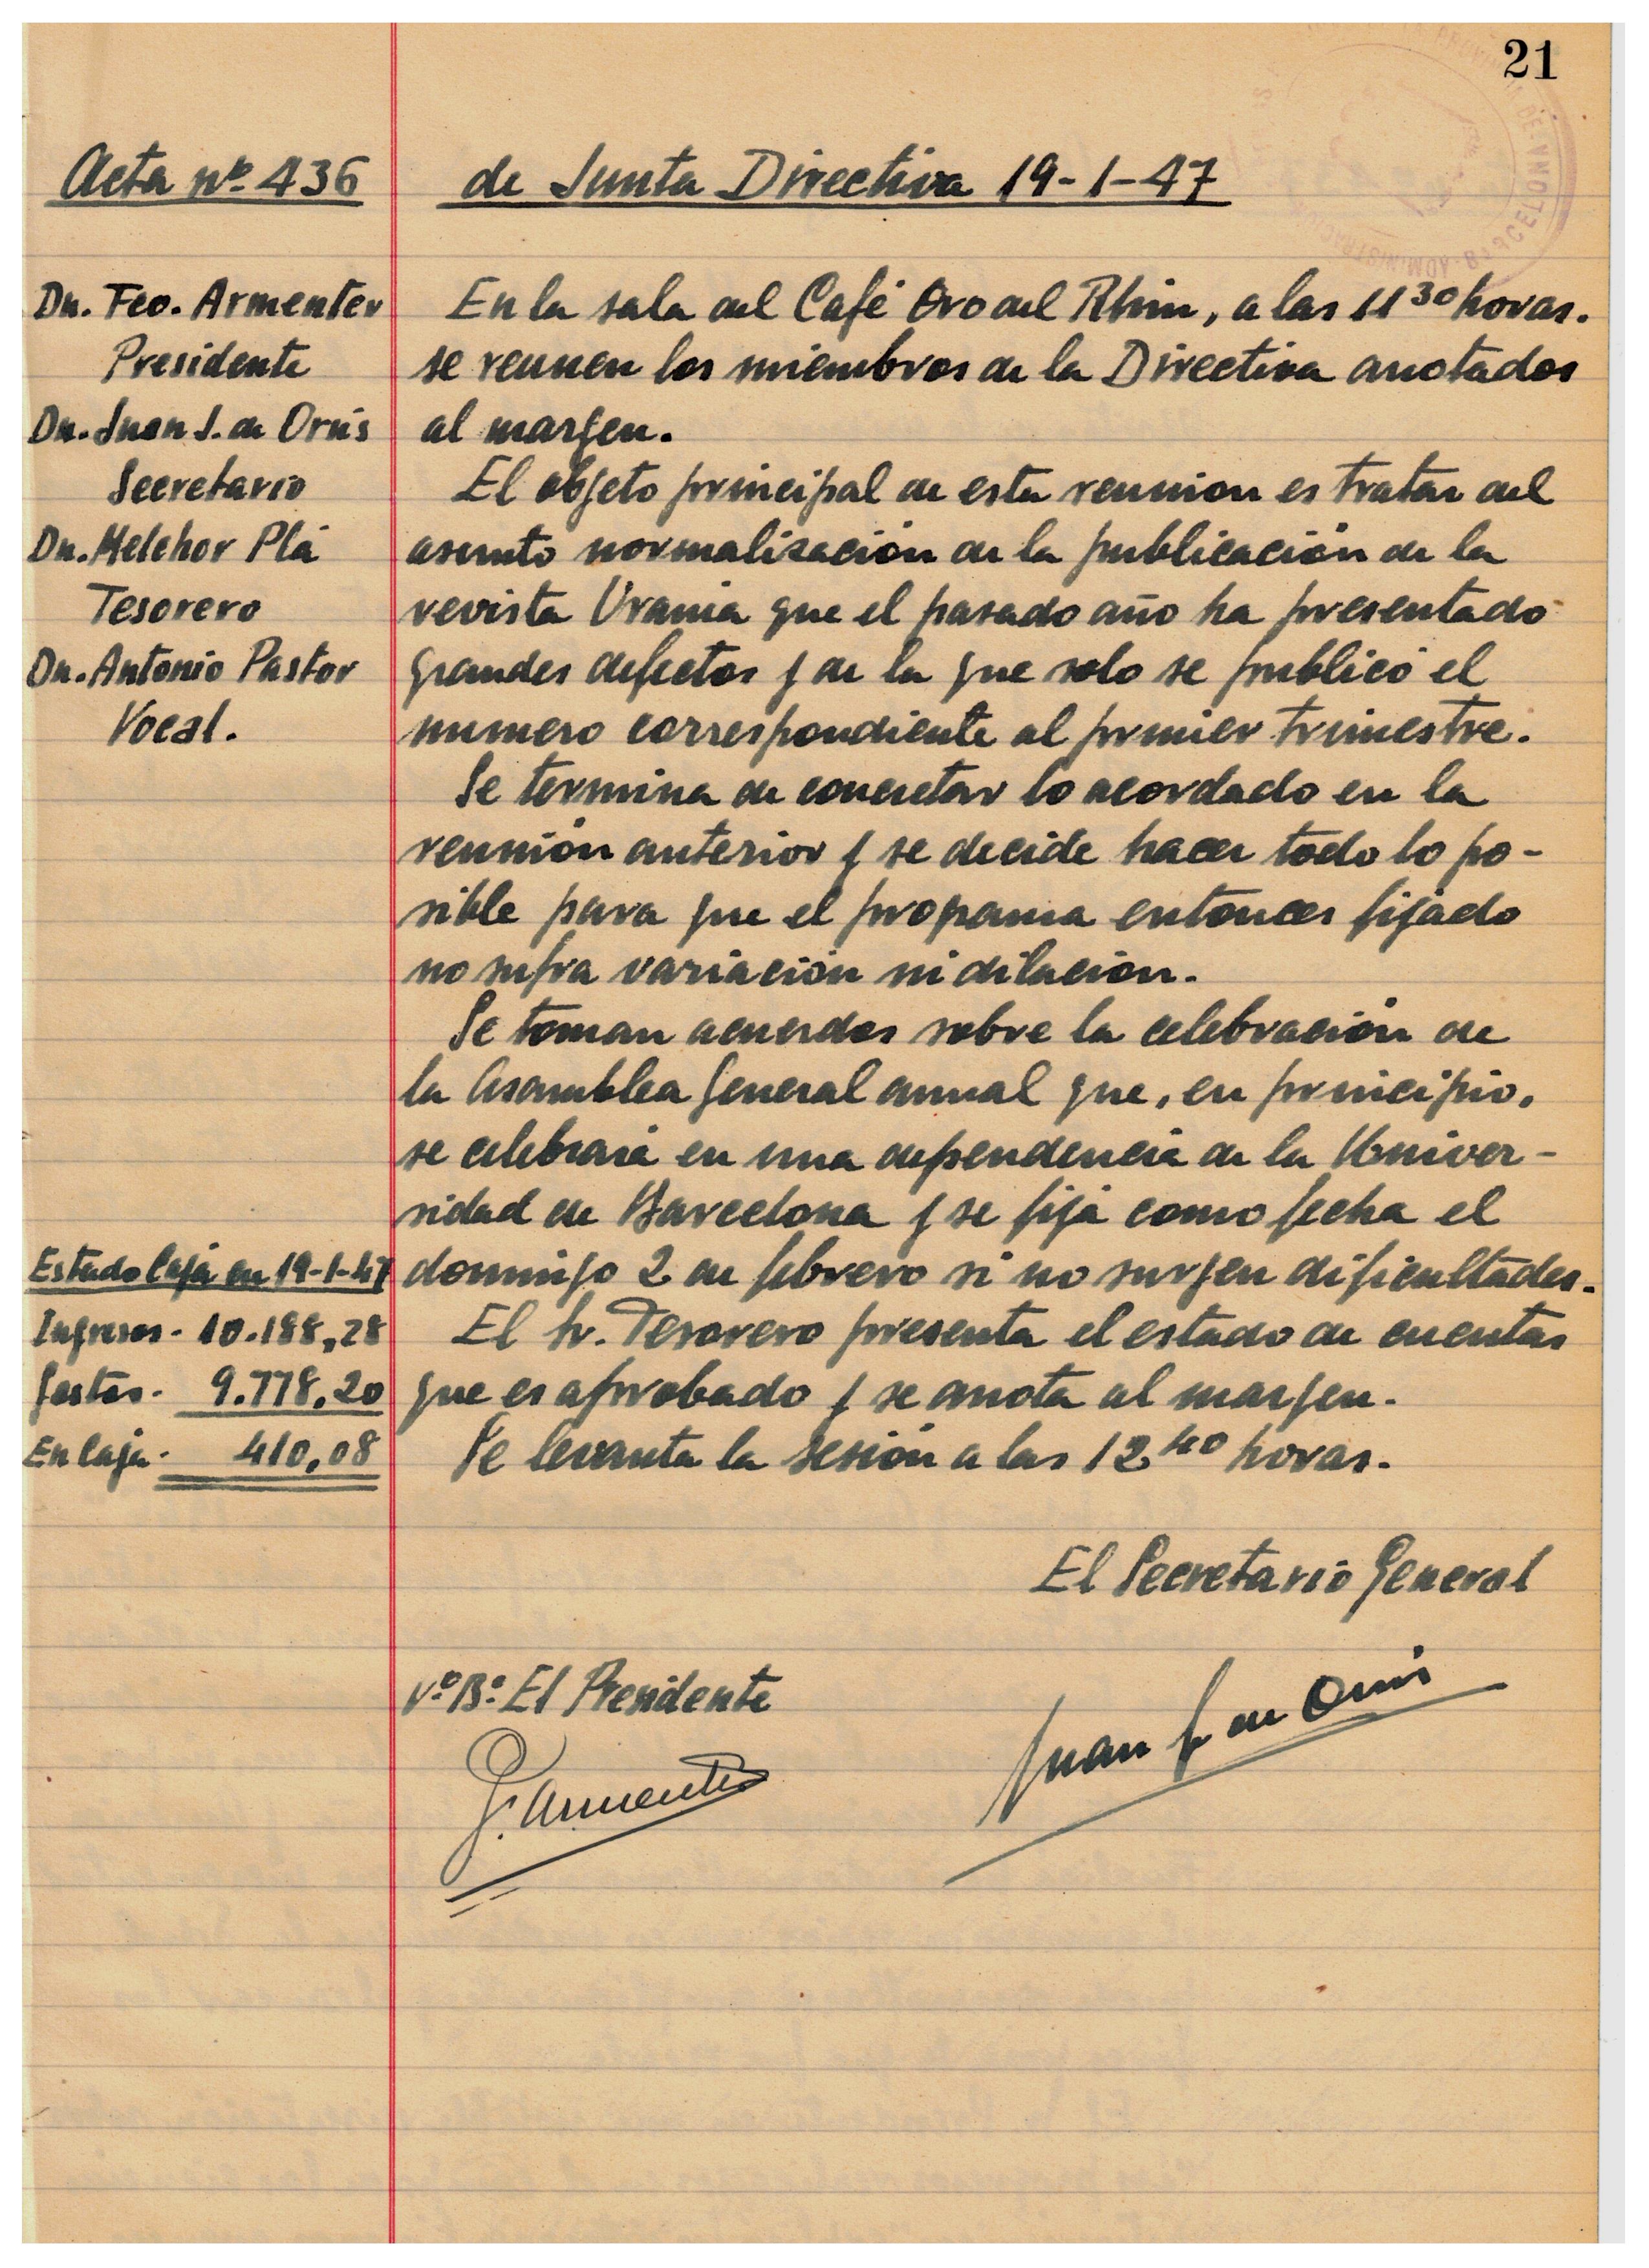 21
Acta nº 436 de Junta Directiva 19-1-47
Dn. Fco. Armenter
Presidente
Dn. Juan J. de Orús
Secretario
Dn. Melchor Plá
Tesorero
Dn. Antonio Pastor
Vocal.
En la sala del Café Oro del Rhin, a las 11 30 horas.
se reunen los miembros de la Directiva anotados
al margen.
El objeto principal de esta reunion es tratar del
asunto normalización de la publicación de la
revista Urania que el pasado año ha presentado
grandes defectos y de la que solo se publicó el
numero correspondiente al primer trimestre.
Se termina de concretar lo acordado en la
reunión anterior y se decide hacer todo lo po-
sible para que el programa entonces fijado
no sufra variación ni dilación.
Se toman acuerdos sobre la celebración de
la Asamblea General anual que, en principio,
se celebrará en una dependencia de la Univer-
sidad de Barcelona y se fija como fecha el
domingo 2 de febrero si no surgen dificultades.
El Sr. Tesorero presenta el estado de cuentas
que es aprobado y se anota al margen.
Se levanta la sesión a las 12 40 horas.
Estado Caja en 19-1-47
Ingresos - 10.188,28
Gastos - 9.778,20
En Caja - 410,08
El Secretario General
Vº Bº El Presidente
Juan J. de Orús
F. Armenter
ADMINISTRACION
BARCELONA